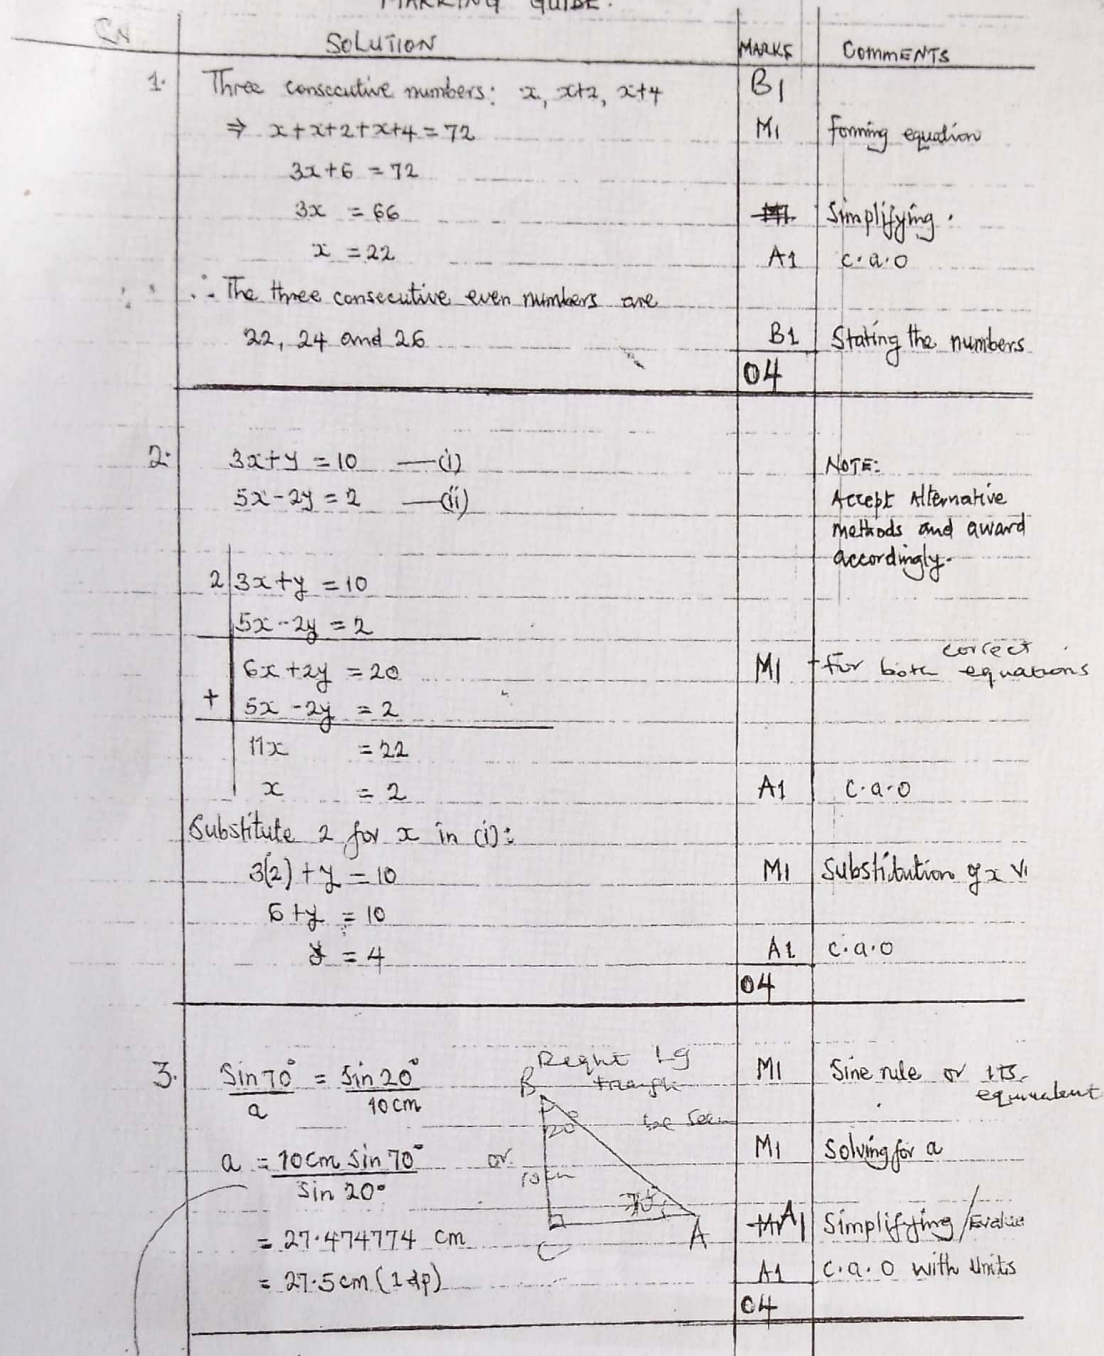 MARKING GUIDE.
QN SOLUTION MARKS COMMENTS
1. Three consecutive numbers: x, x+2, x+4 B1
⇒ x+x+2+x+4 = 72 M1 Forming equation
3x+6 = 72
3x = 66 Simplifying.
x = 22 A1 c.a.o
∴ The three consecutive even numbers are
22, 24 and 26 B1 Stating the numbers
04
2. 3x+y = 10 —(i) NOTE:
5x-2y = 2 —(ii) Accept Alternative
methods and award
accordingly.
2 3x+y = 10
5x-2y = 2
correct
6x+2y = 20 M1 for both equations
+ 5x-2y = 2
11x = 22
x = 2 A1 c.a.o
Substitute 2 for x in (i):
3(2)+y = 10 M1 Substitution of x
6+y = 10
y = 4 A1 c.a.o
04
3. Sin70°/a = Sin20°/10cm M1 Sine rule or its equivalent
Right
triangle
be seen
B
20°
a = 10cm Sin70°/Sin20° or M1 Solving for a
10cm
C A
= 27.474774 cm A1 Simplifying/Evalue
= 27.5cm (1dp) A1 c.a.o with Units
04